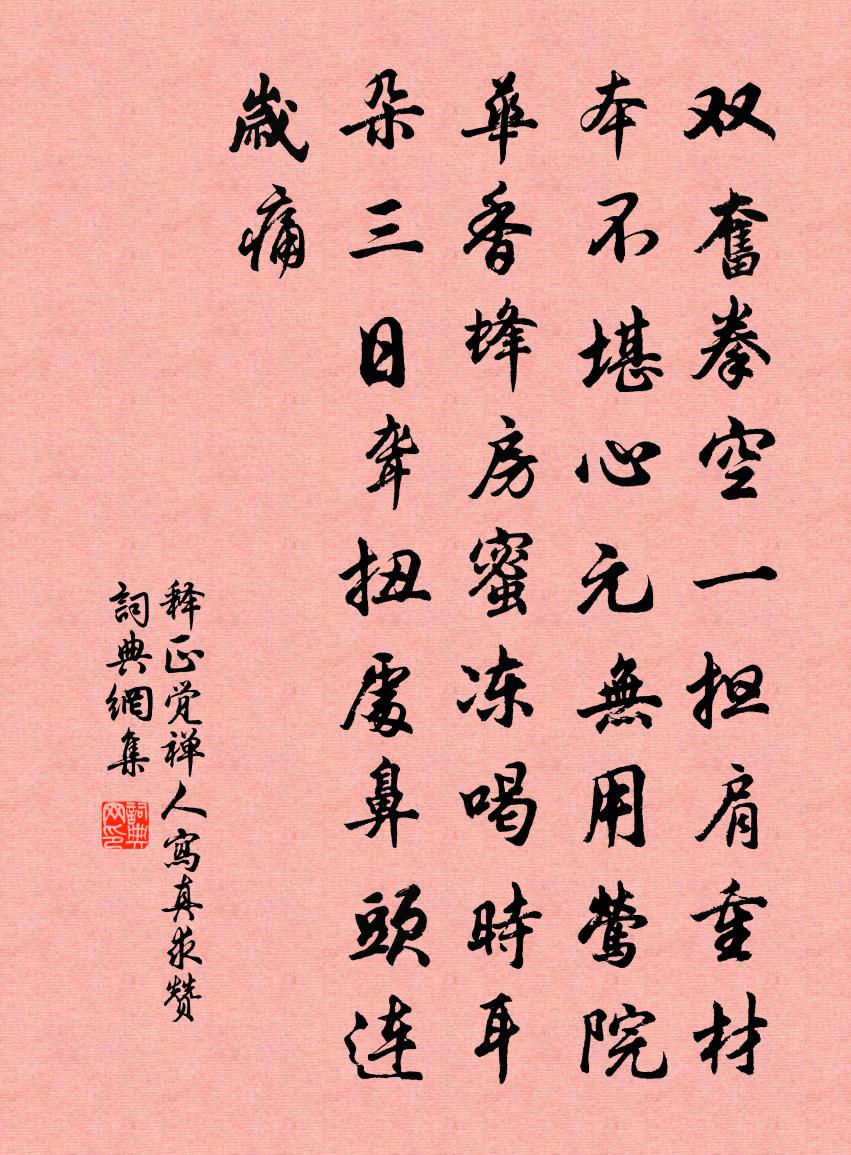 双奮拳空一担肩重材
本不堪心元無用鶯院
華香蜂房蜜冻喝時耳
朵三日聋扭處鼻頭連
歲痛
释正觉禅人寫真求赞
詞典網集
詞典网印